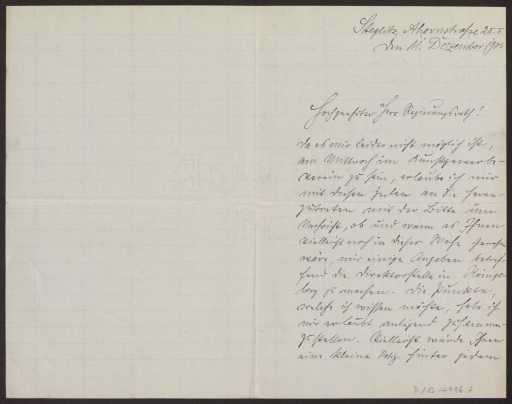 Steglitz, Ahornstraße 25 I
den 11. Dezember 1901
Hochgeehrter Herr Regierungsrath!
da es mir leider nicht möglich ist,
am Mittwoch im Kunstgewerbe-
verein zu sein, erlaube ich mir
mit diesen Zeilen an Sie heran-
zutreten mit der Bitte um
Nachricht, ob und wann es Ihnen
vielleicht noch in dieser Woche
wäre, mir einige Angaben betref-
fend die Direktorstelle in Königs-
berg zu machen. Die Punkte,
welche ich wissen möchte, habe ich
mir erlaubt anliegend zusammen-
zustellen. Vielleicht würde Ihnen
eine kleine Notiz hinter jedem